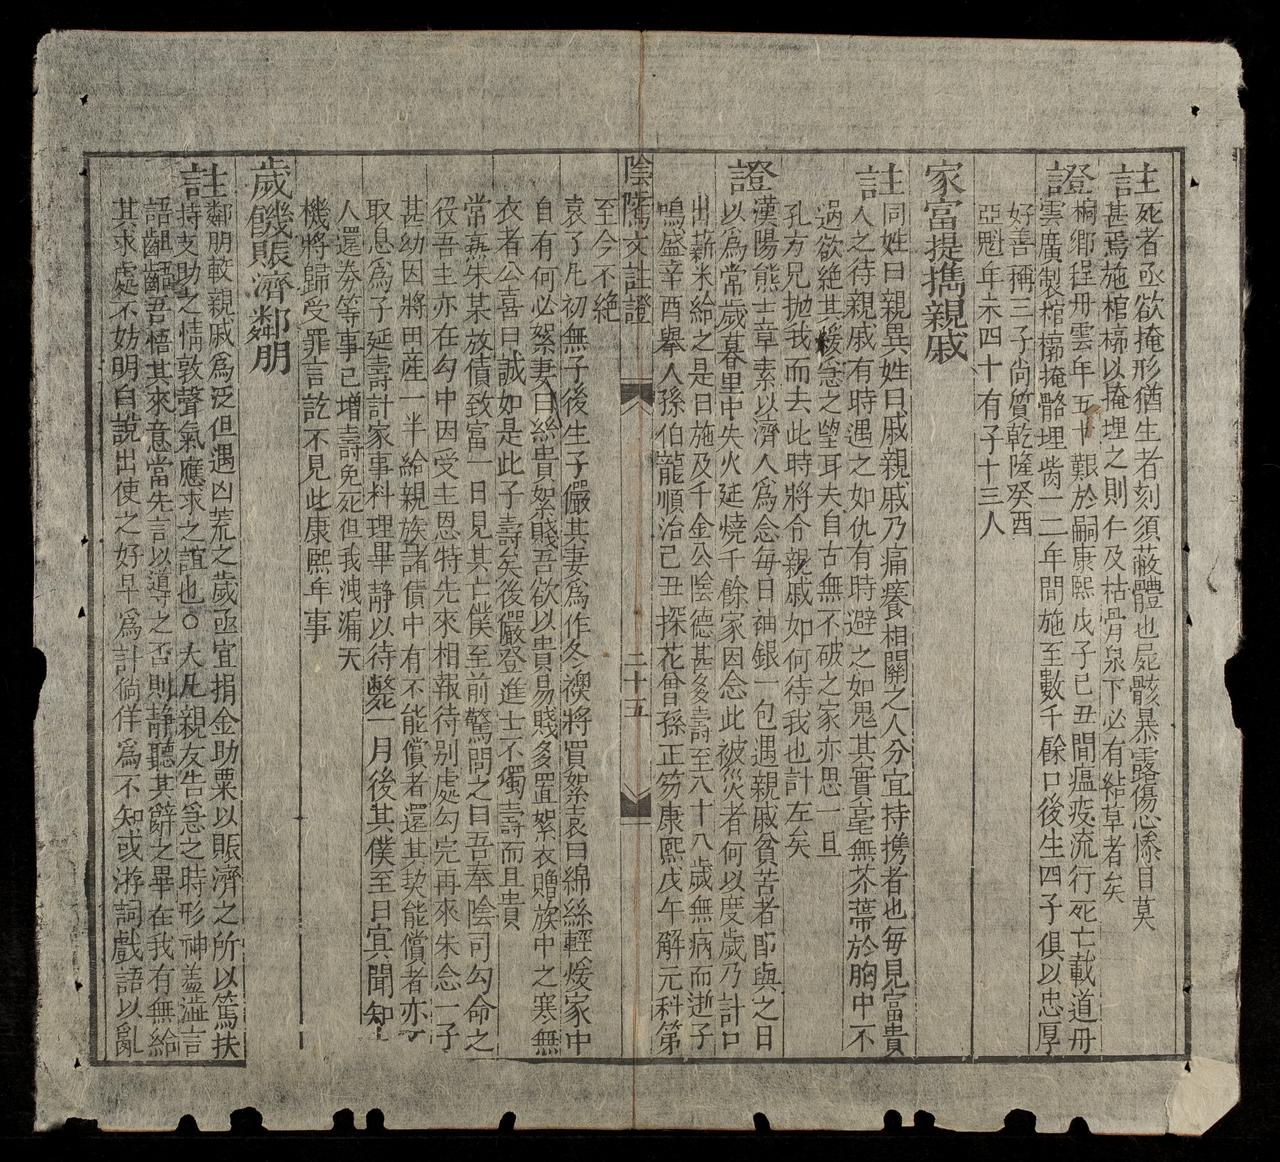 註死者亟欲掩形猶生者刻須蔽體也屍骸暴露傷心慘目莫
甚焉施棺槨以掩埋之則仁及枯骨泉下必有結草者矣
證桐鄉程冊雲年五十艱於嗣康熙戊子己丑間瘟疫流行死亡載道冊
雲廣製棺槨掩骼埋胔一二年間施至數千餘口後生四子俱以忠厚
好善稱三子尚質乾隆癸酉
亞魁年未四十有子十三人
家富提攜親戚
註同姓曰親異姓曰戚親戚乃痛癢相關之人分宜持携者也每見富貴
人之待親戚有時遇之如仇有時避之如鬼其實毫無芥蒂於胸中不
過欲絕其緩急之望耳夫自古無不破之家亦思一旦
孔方兄拋我而去此時將令親戚如何待我也計左矣
證漢陽熊士章素以濟人爲念每日袖銀一包遇親戚貧苦者即與之日
以爲常歲暮里中失火延燒千餘家因念此被災者何以度歲乃計口
出薪米給之是日施及千金公陰德甚多壽至八十八歲無病而逝子
鳴盛辛酉舉人孫伯龍順治己丑探花曾孫正笏康熙戊午解元科第
至今不絕
陰隲文註證
二十五
袁了凡初無子後生子儼其妻爲作冬襖將買絮袁曰綿絲輕煖家中
自有何必絮妻曰絲貴絮賤吾欲以貴易賤多置絮衣贈族中之寒無
衣者公喜曰誠如是此子壽矣後儼登進士不獨壽而且貴
常熟朱某放債致富一日見其亡僕至前驚問之曰吾奉陰司勾命之
役吾主亦在勾中因受主恩特先來相報待别處勾完再來朱念一子
甚幼因將田產一半給親族諸債中有不能償者還其契能償者亦不
取息爲子延壽計家事料理畢靜以待斃一月後其僕至曰冥間知
人還券等事已增壽免死但我洩漏天
機將歸受罪言訖不見此康熙年事
歲饑賑濟鄰朋
註鄰朋較親戚爲泛但遇凶荒之歲亟宜捐金助粟以賑濟之所以篤扶
持支助之情敦聲氣應求之誼也○大凡親友告急之時形神羞澁言
語齟齬吾悟其來意當先言以導之否則靜聽其辭之畢在我有無給
其求處不妨明白說出使之好早爲計倘佯爲不知或游詞戲語以亂